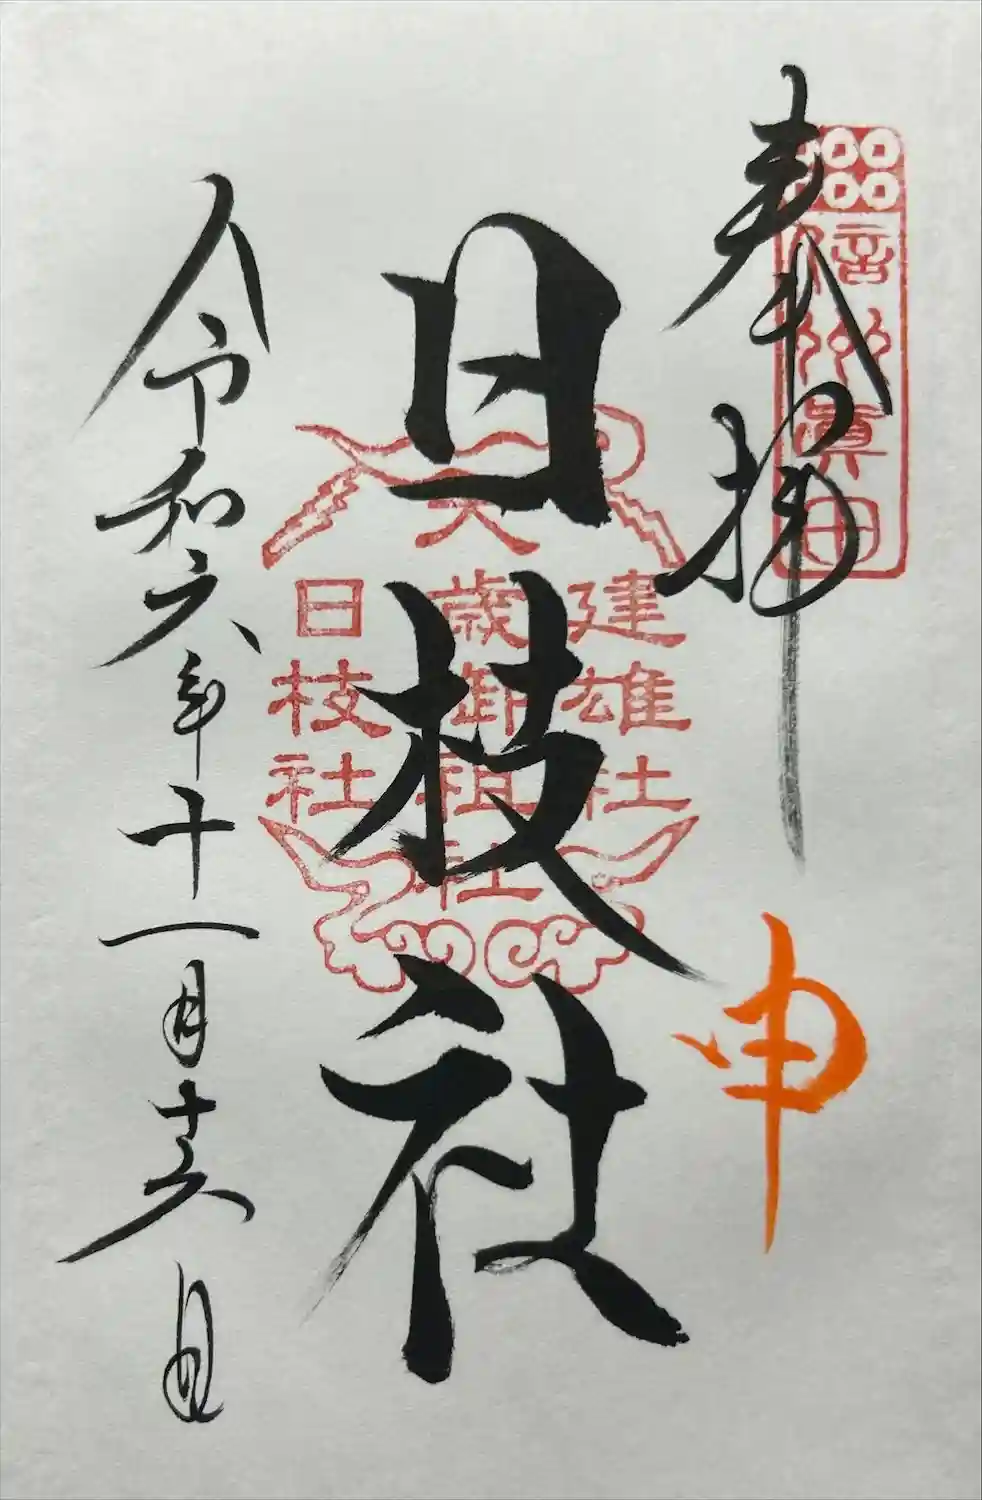 奉拝
申
信州真田
日枝社
建雄社
歳御祖社
日枝社
令和六年十一月十六日